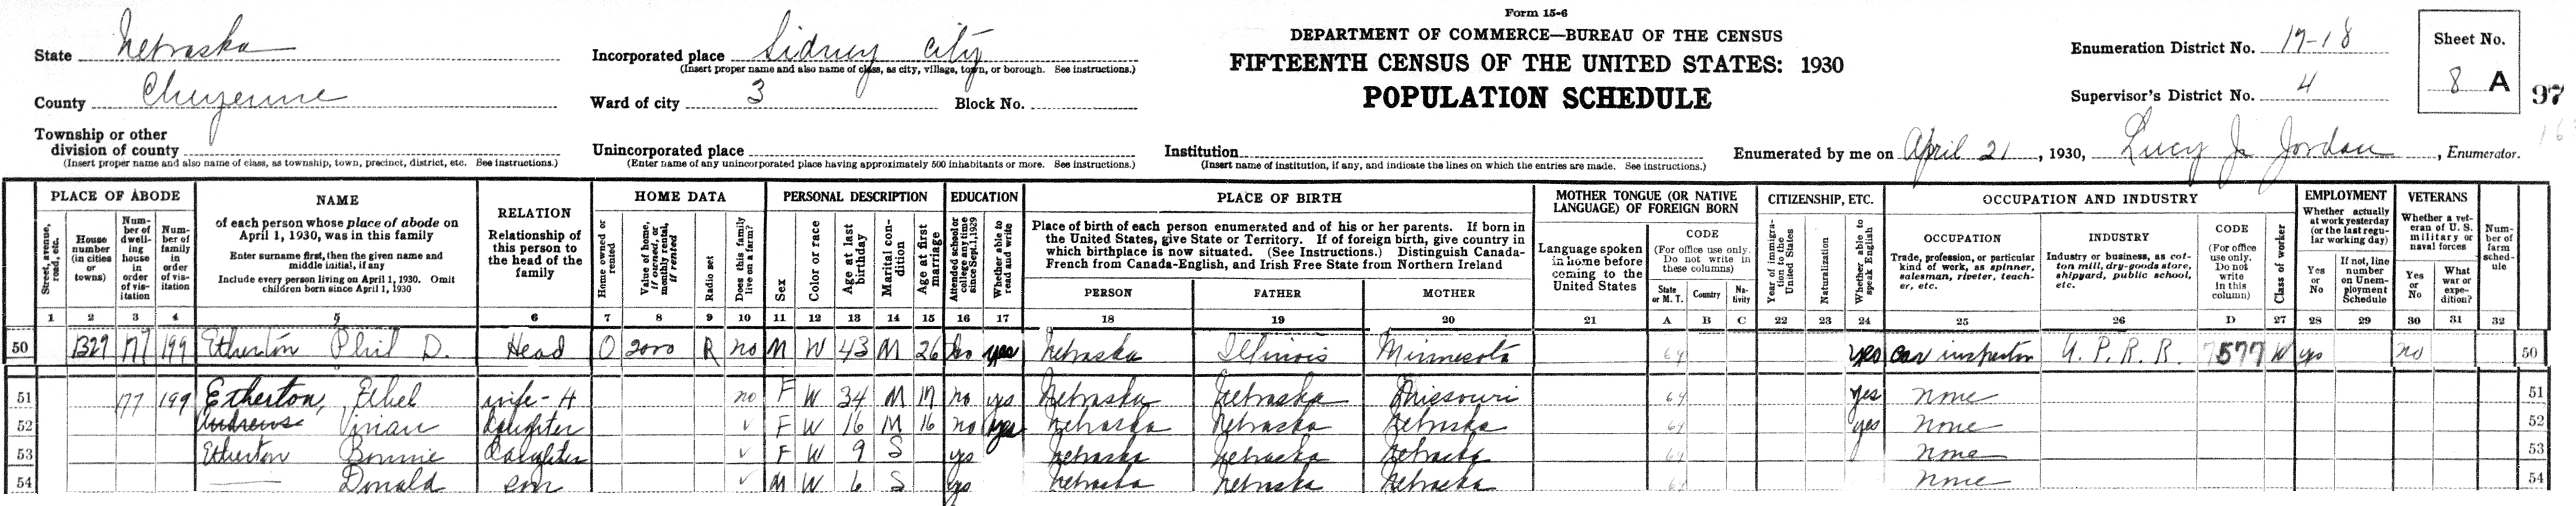 Form 15-6
State Nebraska
Incorporated place Sidney city
(Insert proper name and also name of class, as city, village, town, or borough. See instructions.)
DEPARTMENT OF COMMERCE—BUREAU OF THE CENSUS
FIFTEENTH CENSUS OF THE UNITED STATES: 1930
POPULATION SCHEDULE
Enumeration District No. 17-18
Sheet No.
8 A
97
County Cheyenne
Ward of city 3 Block No.
Supervisor's District No. 4
Township or other
division of county
(Insert proper name and also name of class, as township, town, precinct, district, etc. See instructions.)
Unincorporated place
(Enter name of any unincorporated place having approximately 500 inhabitants or more. See instructions.)
Institution
(Insert name of institution, if any, and indicate the lines on which the entries are made. See instructions.)
Enumerated by me on April 21, 1930, Lucy J. Jordan, Enumerator.
PLACE OF ABODE
Street, avenue, road, etc.
House number (in cities or towns)
Number of dwelling house in order of visitation
Number of family in order of visitation
NAME
of each person whose place of abode on
April 1, 1930, was in this family
Enter surname first, then the given name and
middle initial, if any
Include every person living on April 1, 1930. Omit
children born since April 1, 1930
RELATION
Relationship of
this person to
the head of the
family
HOME DATA
Home owned or rented
Value of home, if owned, or monthly rental, if rented
Radio set
Does this family live on a farm?
PERSONAL DESCRIPTION
Sex
Color or race
Age at last birthday
Marital condition
Age at first marriage
EDUCATION
Attended school or college any time since Sept. 1, 1929
Whether able to read and write
PLACE OF BIRTH
Place of birth of each person enumerated and of his or her parents. If born in
the United States, give State or Territory. If of foreign birth, give country in
which birthplace is now situated. (See Instructions.) Distinguish Canada-
French from Canada-English, and Irish Free State from Northern Ireland
PERSON FATHER MOTHER
MOTHER TONGUE (OR NATIVE
LANGUAGE) OF FOREIGN BORN
Language spoken
in home before
coming to the
United States
CODE
(For office use only.
Do not write in
these columns)
State or M. T. Country Nativity
CITIZENSHIP, ETC.
Year of immigration to the United States
Naturalization
Whether able to speak English
OCCUPATION AND INDUSTRY
OCCUPATION
Trade, profession, or particular
kind of work, as spinner,
salesman, riveter, teach-
er, etc.
INDUSTRY
Industry or business, as cot-
ton mill, dry-goods store,
shipyard, public school,
etc.
CODE
(For office
use only.
Do not
write
in this
column)
Class of worker
EMPLOYMENT
Whether actually
at work yesterday
(or the last regu-
lar working day)
Yes or No
If not, line number on Unemployment Schedule
VETERANS
Whether a vet-
eran of U. S.
military or
naval forces
Yes or No
What war or expedition?
Number of farm schedule
1 2 3 4 5 6 7 8 9 10 11 12 13 14 15 16 17 18 19 20 21 A B C 22 23 24 25 26 D 27 28 29 30 31 32
50 1329 177 199 Etherton Phil D. Head O 2000 R no M W 43 M 26 no yes Nebraska Illinois Minnesota 64 yes car inspector U. P. R. R. 7577 W yes no 50
51 177 199 Etherton, Ethel wife-H no F W 34 M 17 no yes Nebraska Nebraska Missouri 64 yes none 51
52 Andrews Vivian daughter v F W 16 M 16 no yes Nebraska Nebraska Nebraska 64 yes none 52
53 Etherton Bonnie Daughter v F W 9 S yes Nebraska Nebraska Nebraska 64 none 53
54 — Donald son v M W 6 S yes Nebraska Nebraska Nebraska 64 none 54